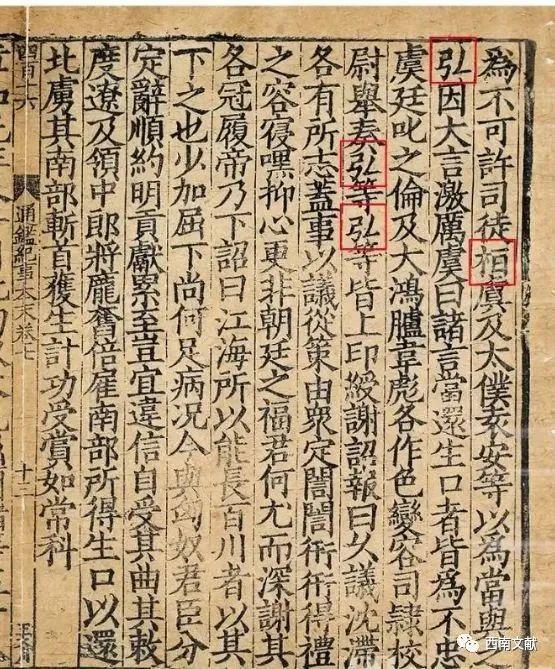 為不可許司徒桓虞及太僕袁安等以為當與
弘因大言激厲虞曰諸言當還生口者皆為不忠
虞廷叱之倫及大鴻臚韋彪各作色變容司隸校
尉舉奏弘等弘等皆上印綬謝詔報曰久議沈滯
各有所志蓋事以議從策由衆定誾誾衎衎得禮
之容寑嘿抑心更非朝廷之福君何尤而深謝其
各冠履帝乃下詔曰江海所以能長百川者以其
下之也少加屈下尚何足病況今與匈奴君臣分
定辭順約明貢獻累至豈宜違信自受其曲其敕
度遼及領中郎將龐奮倍雇南部所得生口以還
北虜其南部斬首獲生計功受賞如常科
四百十六
通鑑紀事本末卷七
十二
西南文献